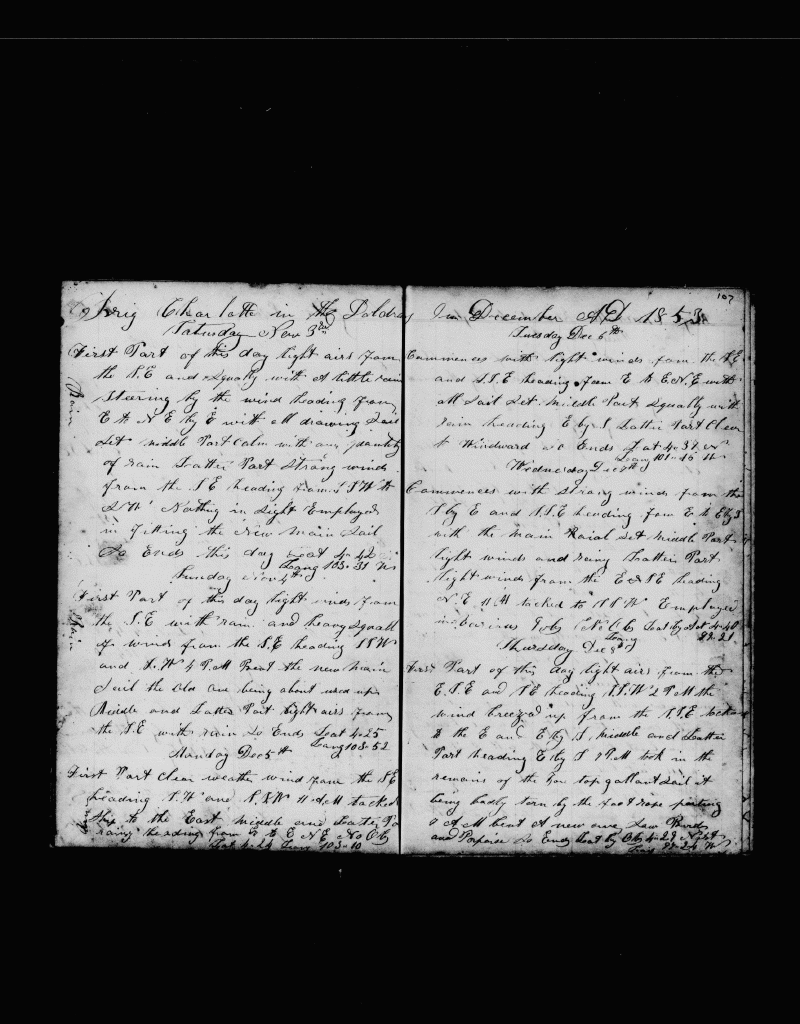 Brig Charlotte in the Doldrs
Saturday Nov 3rd
First Part of this day light airs from
the S.E and Squaly with A little rain
Steering by the wind heading from
E to N E by E with all drawing Sail
Set middle Part Calm with any quantity
of rain Latter Part Strong winds
from the S.E heading from S S W to
S W Nothing in Sight Employed
in fitting the New Main Sail
So Ends this day Lat 4-42
Long 103-31 W
Sunday Nov 4th
First Part of this day light winds from
the S.E with rain and heavy Squall
of wind from the S.E heading S S W
and S.W 4 P.M Bent the new Main
Sail the Old One being about used up
Middle and Latter Part light airs from
the S.E with rain So Ends Lat 4-25
Long 103-52
Monday Dec 5th
First Part clear weather wind from the SE
heading S.W and S.S.W 11 A.M tacked
Ship to the East middle and Latter Pa
rainy heading from E to E N E No Ob
Lat 4-24 Long 103-10
Rain
Rain
107
In December AD 1853
Tuesday Dec 6th
Commences with light winds from the S.E
and S.S.E heading from E to E.N.E with
all Sail Set middle Part Squaly with
rain heading E by S Latter Part Clear
to Windward So Ends Lat 4-37
Long 101-15 W
Wednesday Dec 7th
Commences with Strong winds from the
S by E and S.S.E heading from E to E by S
with the Main Roial Set Middle Part
light winds and rainy Latter Part
light winds from the E S E heading
N E 11 M tacked to S S W Employed
in Sat by Lat 4-40
Long 99-21
Thursday Dec 8th
First Part of this day light airs from the
E.S.E and S E heading S.S.W 2 P.M the
wind breezed up from the S.S.E tacked
to the E and E by S. middle and Latter
Part heading E by S P.M took in the
remains of the for top gallant Sail it
being badly torn by the foot rope parting
8 A M bent A new one Saw Birds
and Porpoise So Ends Lat by Ob 4-29
Long 99-24 W